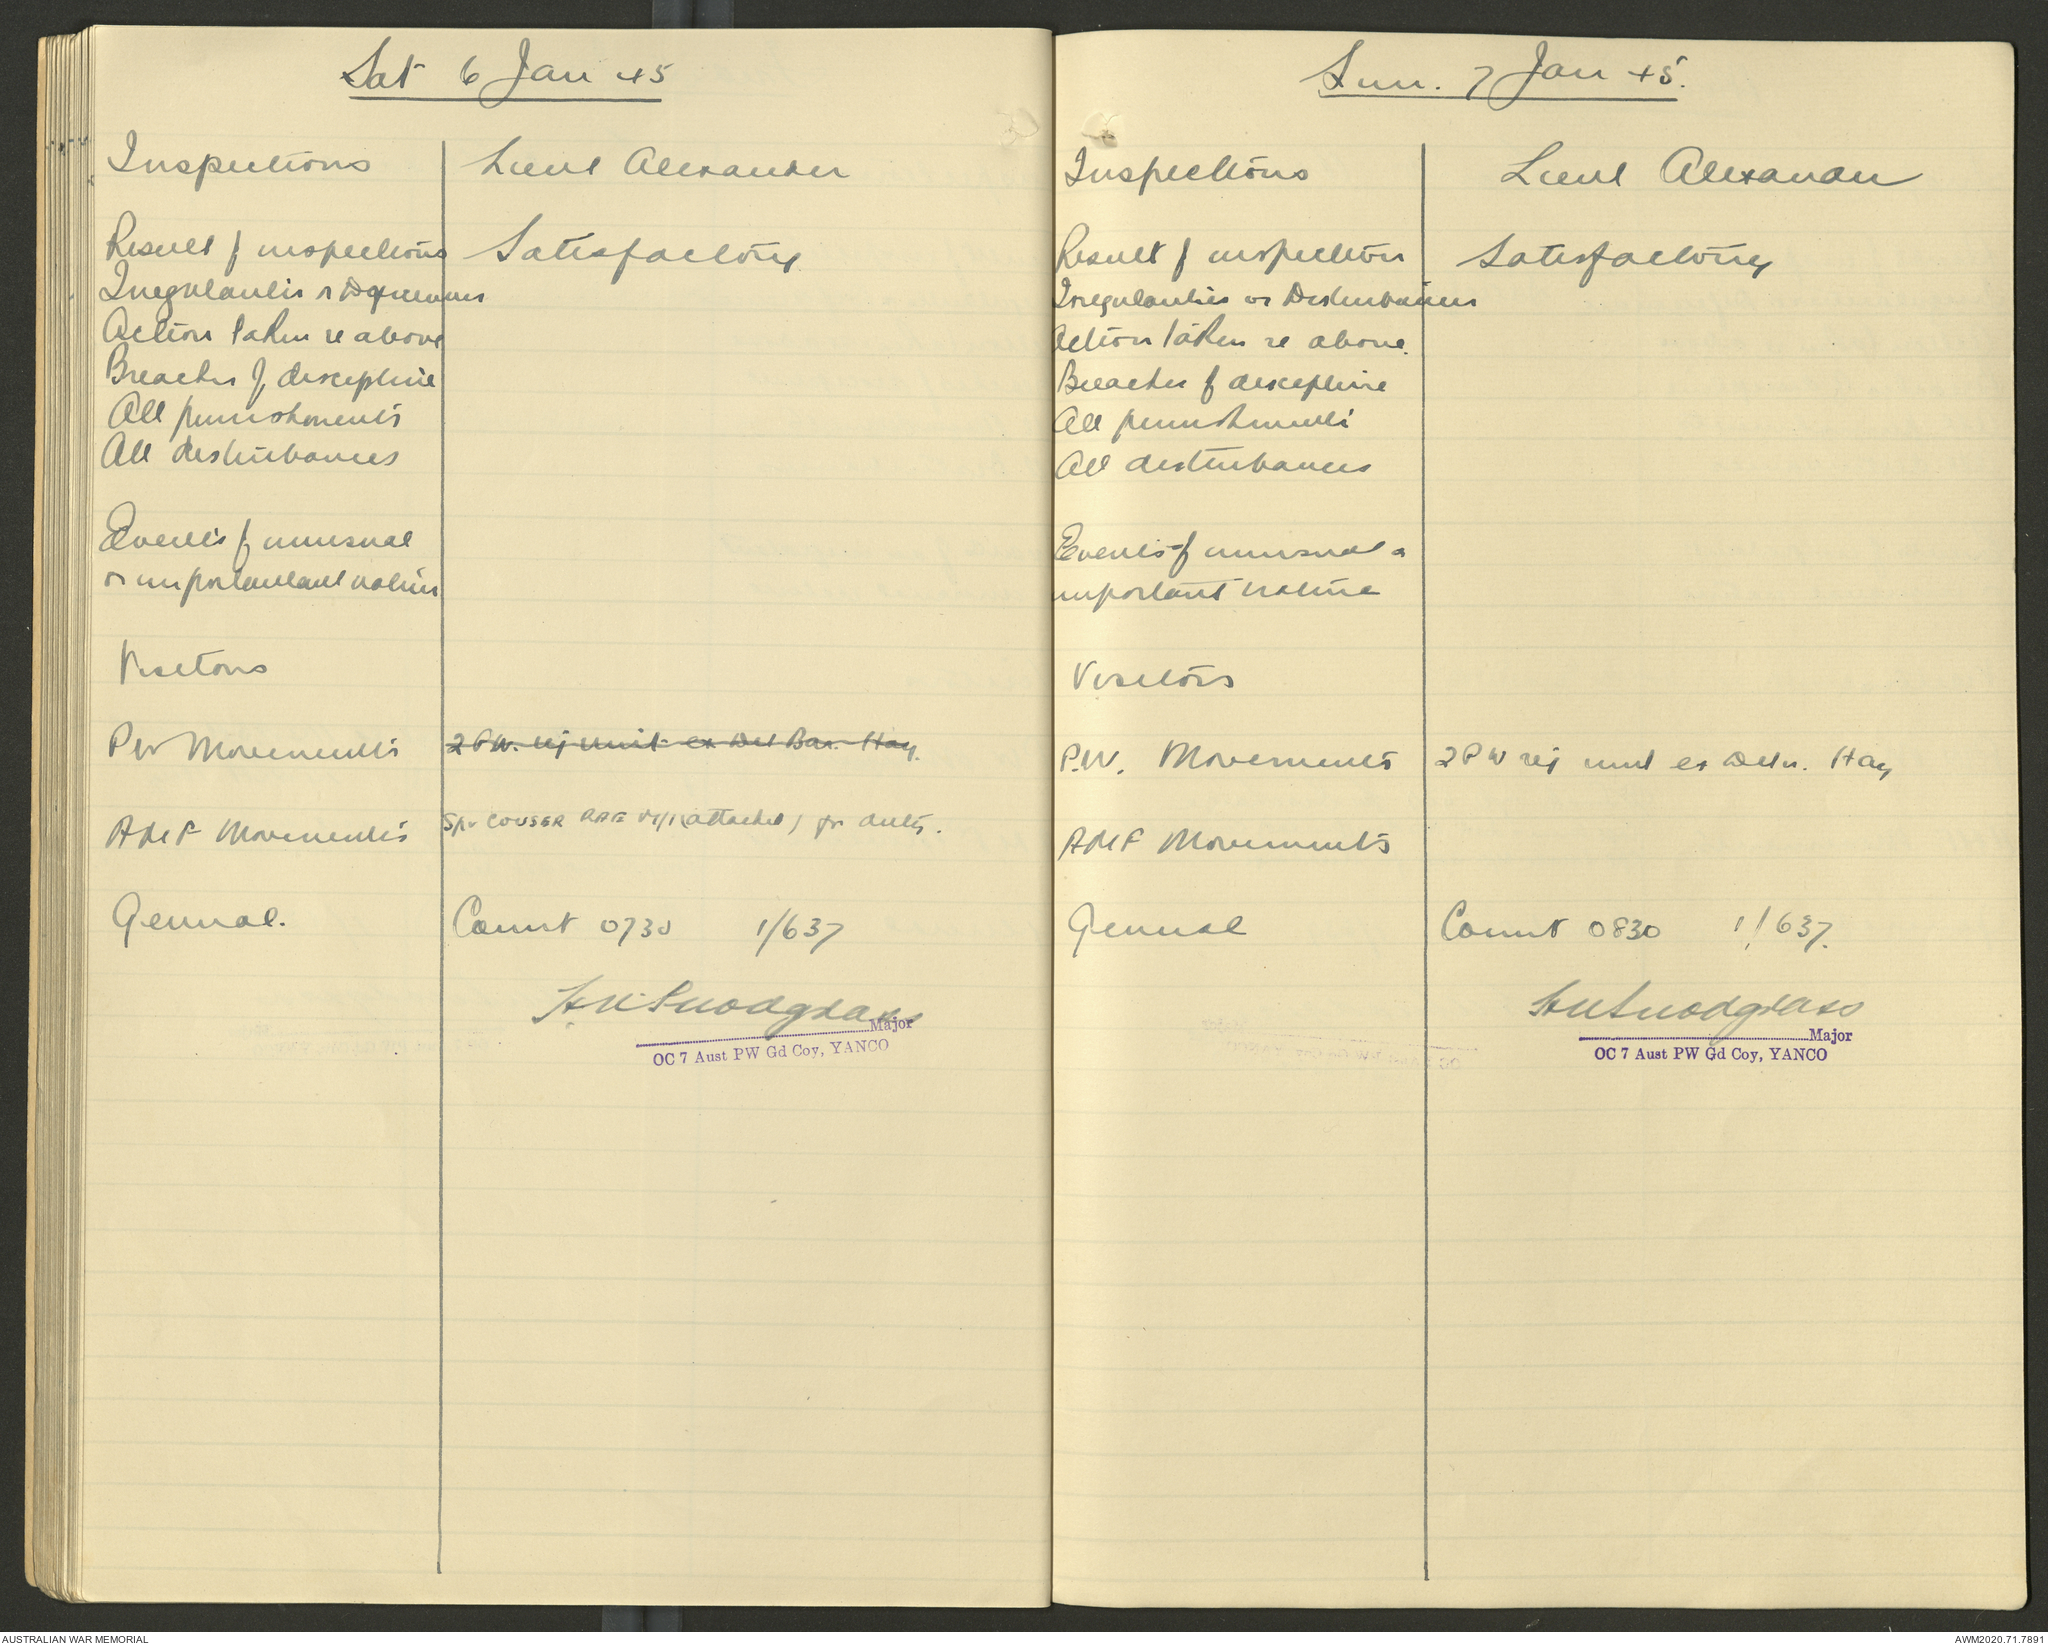 Sat 6 Jan 45
Inspections Lieut Alexander
Result of inspections Satisfactory
Irregularities or
Action taken re above
Breaches of discipline
All punishments
All disturbances
Events of unusual
or importantant nature
Visitors
PW Movements 2 PW. rej unit ex Det Bar. Hay.
AMF Movements Spr COUSER RAE (attached) for duty.
General. Count 0730 1/637
Snodgrass
Major
OC 7 Aust PW Gd Coy, YANCO
Sun. 7 Jan 45.
Inspections Lieut Alexander
Result of inspection Satisfactory
Irregularities or Disturbances
Action taken re above.
Breaches of discipline
All punishments
All disturbances
Events of unusual or
important nature
Visitors
P.W. Movements 2 PW rej unit ex Detn. Hay
AMF Movements
General Count 0830 1/637.
Snodgrass
Major
OC 7 Aust PW Gd Coy, YANCO
AUSTRALIAN WAR MEMORIAL
AWM2020.71.7891